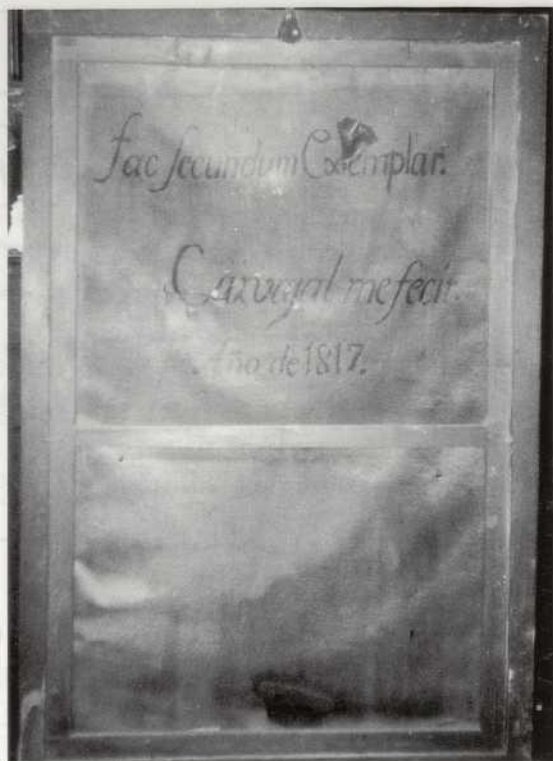 fac secundum Exemplar.
Carvajal me fecit.
Año de 1817.